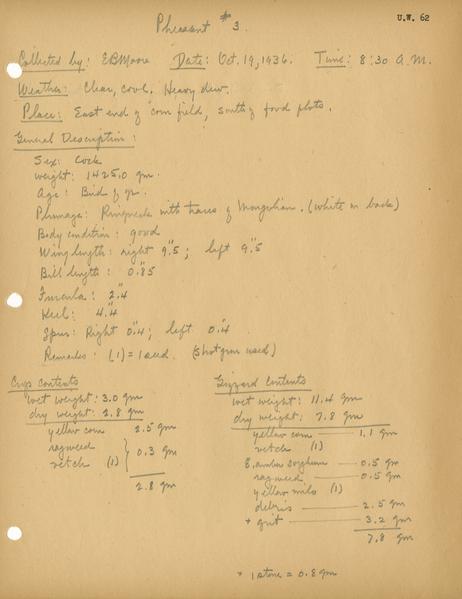 U.W. 62
Pheasant #3.
Collected by: EBMoore Date: Oct. 19, 1936. Time: 8:30 A.M.
Weather: Clear, cool. Heavy dew.
Place: East end of corn field, south of food plots.
General Description:
Sex: Cock
weight: 1425.0 gm.
Age: Bird of yr.
Plumage: Ringneck with traces of Mongolian. (white on back)
Body condition: good
Wing length: right 9".5; left 9".5
Bill length: 0".85
Furcula: 2".4
Keel: 4".4
Spur: Right 0".4; left 0".4
Remarks: (1) = 1 seed. (Shotgun used)
Crop contents
wet weight: 3.0 gm
dry weight: 2.8 gm
yellow corn 2.5 gm
ragweed
vetch (1) } 0.3 gm
2.8 gm
Gizzard Contents
wet weight: 11.4 gm
dry weight: 7.8 gm
yellow corn 1.1 gm
vetch (1)
E. amber sorghum 0.5 gm
ragweed 0.5 gm
yellow milo (1)
debris 2.5 gm
* grit 3.2 gm
7.8 gm
* 1 stone = 0.8 gm